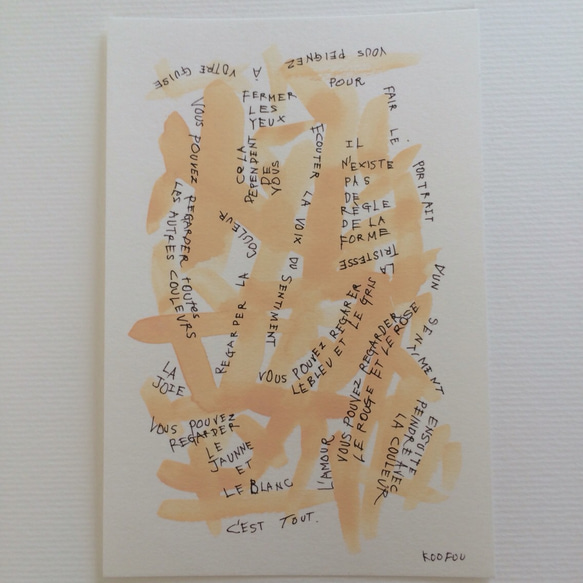 POUR
FAIR LE
PORTRAIT
D'UN SENTIMENT
FERMER
LES
YEUX
ECOUTER LA VOIX DU SENTIMENT
REGARDER LA COULEUR
ENSUITE
PEINDRE AVEC
LA COULEUR
IL
N'EXISTE
PAS
DE
REGLE
DE LA
FORME
VOUS PEIGNEZ
À
VOTRE GUISE
CELA
DEPENDENT
DE
VOUS
LA TRISTESSE
VOUS POUVEZ REGARER
LE BLEU ET LE GRIS
L'AMOUR
VOUS POUVEZ REGARDER
LE ROUGE ET LE ROSE
LA
JOIE
VOUS POUVEZ
REGARDER
LE
JAUNNE
ET
LE BLANC
VOUS POUVEZ REGARDER TOUTES
LAS AUTRES COULEURS
C'EST TOUT.
KOOFOU